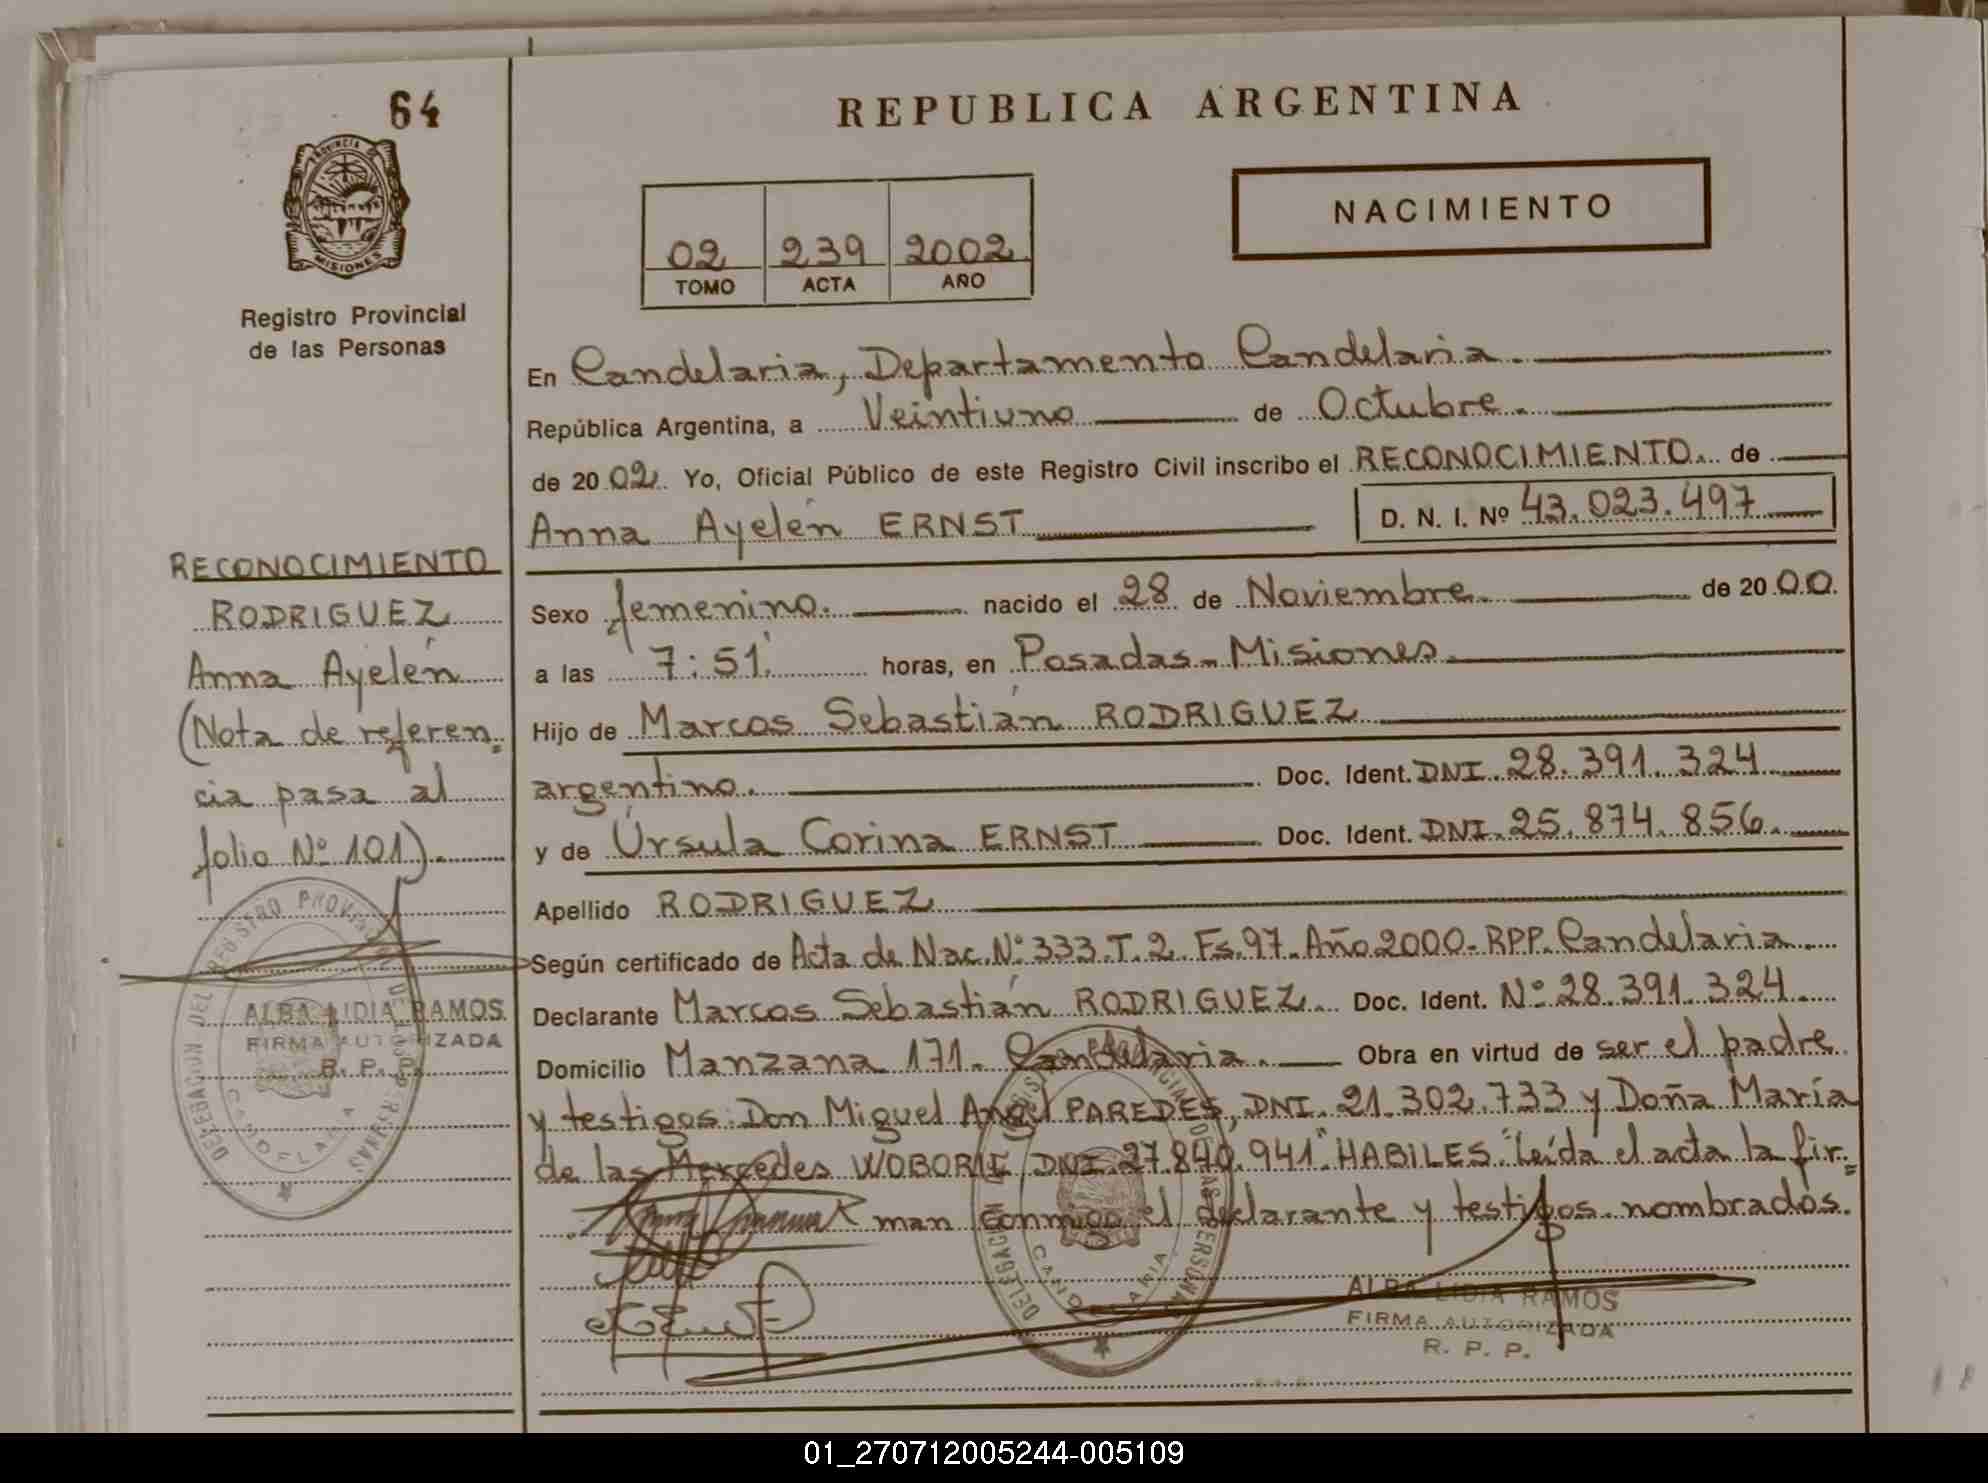 64
REPUBLICA ARGENTINA
PROVINCIA DE
MISIONES
NACIMIENTO
02 239 2002
TOMO ACTA AÑO
Registro Provincial
de las Personas
En Candelaria, Departamento Candelaria.
República Argentina, a Veintiuno de Octubre.
de 2002. Yo, Oficial Público de este Registro Civil inscribo el RECONOCIMIENTO de
Anna Ayelén ERNST D. N. I. Nº 43.023.497
Sexo femenino. nacido el 28 de Noviembre. de 2000.
a las 7:51' horas, en Posadas-Misiones.
Hijo de Marcos Sebastián RODRIGUEZ
argentino. Doc. Ident. DNI. 28.391.324
y de Úrsula Corina ERNST Doc. Ident. DNI. 25.874.856.
Apellido RODRIGUEZ
Según certificado de Acta de Nac. Nº 333. T. 2. Fs. 97. Año 2000. RPP. Candelaria
Declarante Marcos Sebastián RODRIGUEZ. Doc. Ident. Nº 28.391.324
Domicilio Manzana 171. Candelaria. Obra en virtud de ser el padre
y testigos: Don Miguel Angel PAREDES, DNI. 21.302.733 y Doña María
de las Mercedes DNI. 27.840.941 "HABILES". Leída el acta la fir=
man conmigo el declarante y testigos nombrados.
ALBA LIDIA RAMOS
FIRMA AUTORIZADA
R. P. P.
RECONOCIMIENTO
RODRIGUEZ
Anna Ayelén
(Nota de referen=
cia pasa al
folio Nº 101).
DELEGACION DEL REGISTRO PROVINCIAL DE LAS PERSONAS
ALBA LIDIA RAMOS
FIRMA AUTORIZADA
R. P. P.
01_270712005244-005109